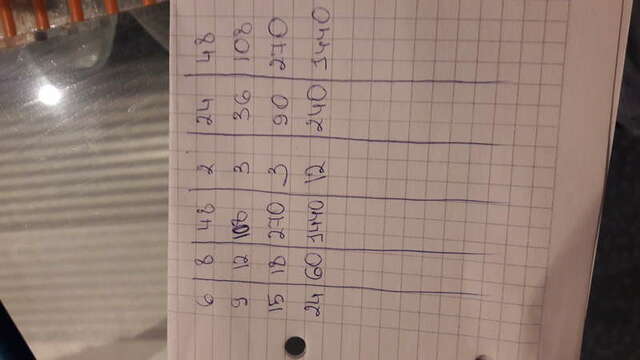 6 8 48 2 24 48
9 12 108 3 36 108
15 18 270 3 90 270
24 60 1440 12 240 1440